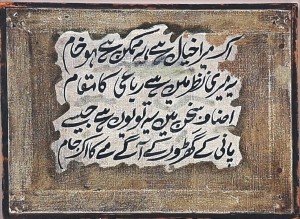 اک میرا خیال ہے یہ ممکن ہے ہو خام
یہ میری نظر میں ہے رباعی کا مقام
اصناف سخن میں ہے تو یوں ہے جیسے
پانی کے گھڑوں کے آگے مے کا اک جام